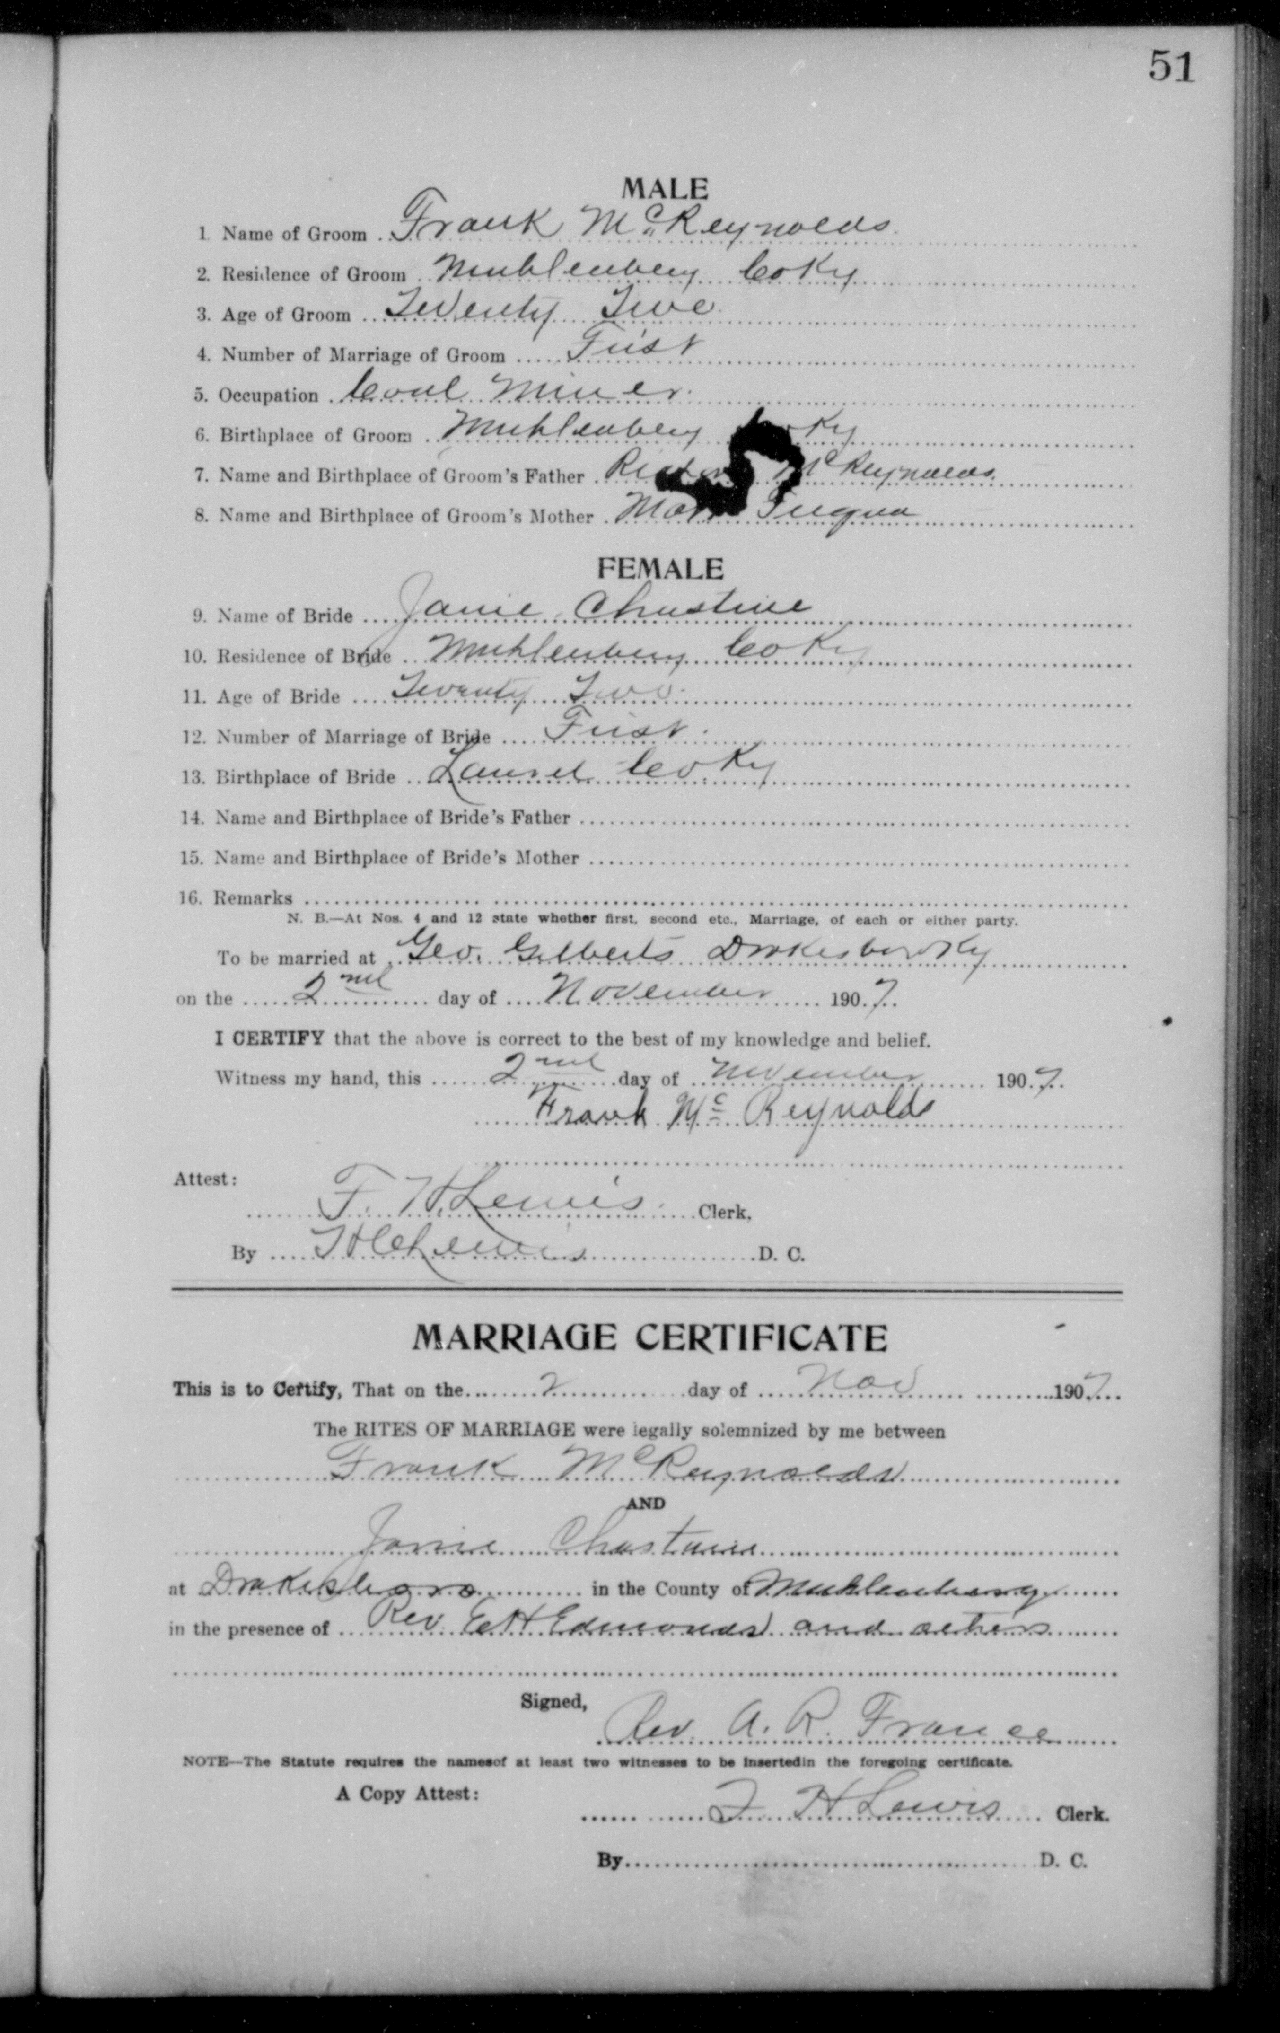 51
MALE
1. Name of Groom Frank McReynolds
2. Residence of Groom Muhlenberg Co Ky
3. Age of Groom Twenty Two
4. Number of Marriage of Groom First
5. Occupation Coal Miner
6. Birthplace of Groom Muhlenberg Ky
7. Name and Birthplace of Groom's Father McReynolds
8. Name and Birthplace of Groom's Mother Fuqua
FEMALE
9. Name of Bride Janie
10. Residence of Bride Muhlenberg Co Ky
11. Age of Bride Twenty Two
12. Number of Marriage of Bride First
13. Birthplace of Bride Laurel Co. Ky
14. Name and Birthplace of Bride's Father
15. Name and Birthplace of Bride's Mother
16. Remarks
N. B.—At Nos. 4 and 12 state whether first, second etc., Marriage, of each or either party.
To be married at Geo. Gilberts Drakesboro Ky
on the 2nd day of November 1907
I CERTIFY that the above is correct to the best of my knowledge and belief.
Witness my hand, this 2nd day of November 1907
Frank Mc Reynolds
Attest:
F. H. Lewis Clerk.
By Lewis D. C.
MARRIAGE CERTIFICATE
This is to Certify, That on the 2 day of Nov 1907
The RITES OF MARRIAGE were legally solemnized by me between
Frank McReynolds
AND
Janie
at Drakesboro in the County of Muhlenberg
in the presence of Rev E H Edmonds and others
Signed,
Rev. A. R. France
NOTE—The Statute requires the namesof at least two witnesses to be insertedin the foregoing certificate.
A Copy Attest:
F H Lewis Clerk.
By D. C.